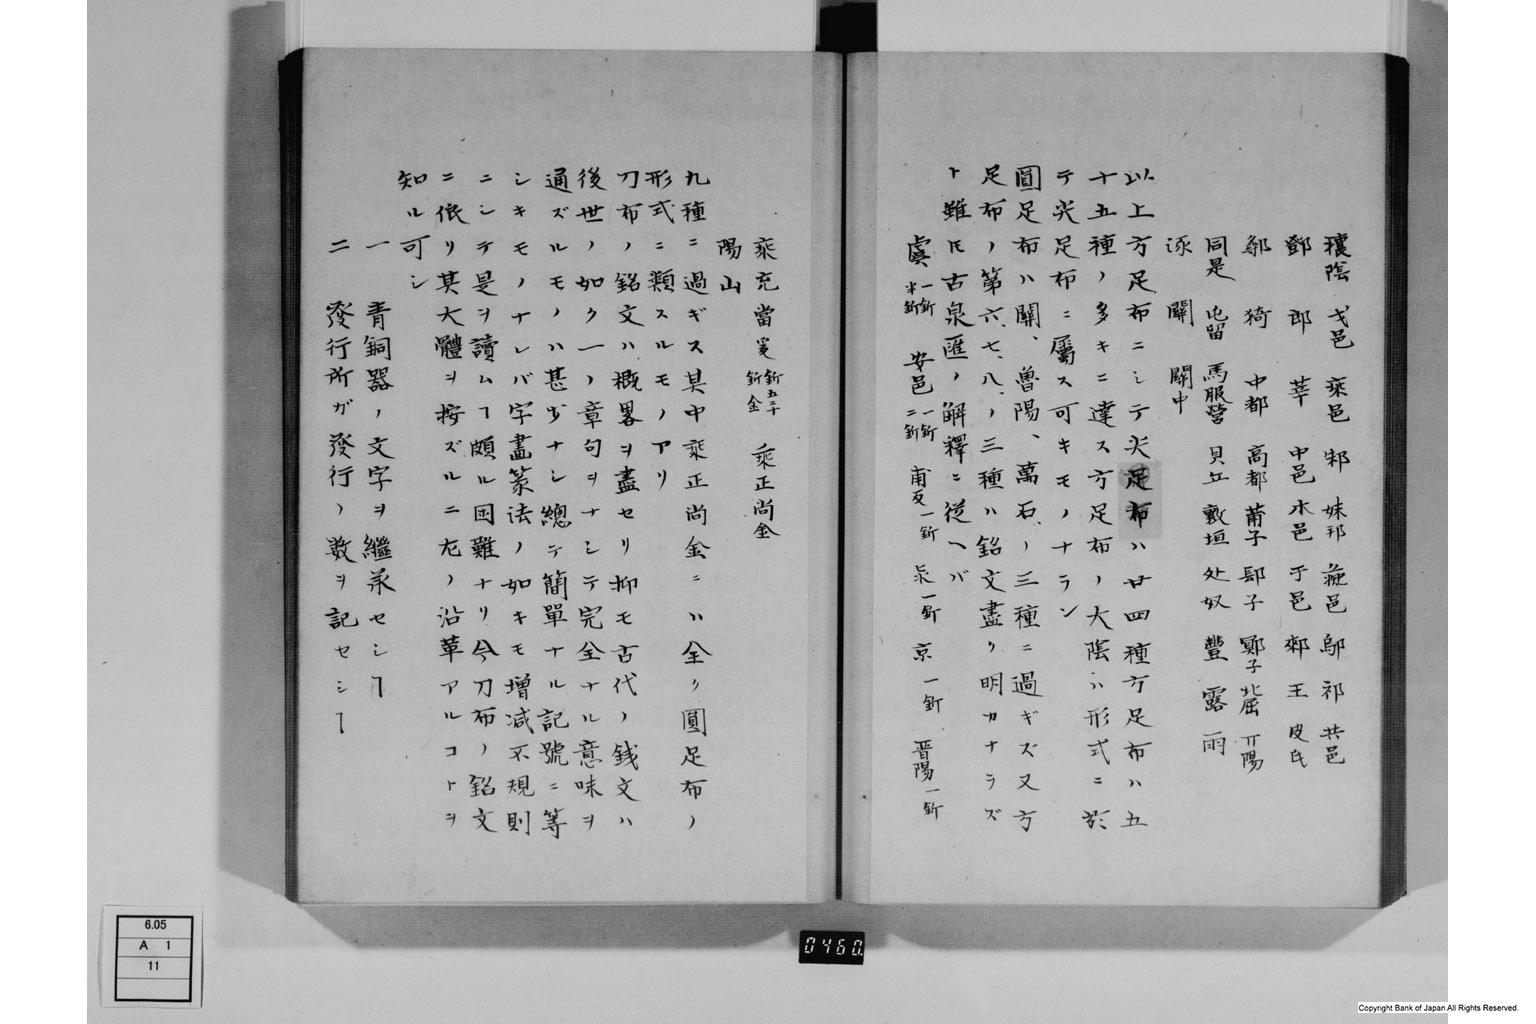 穰陰 戈邑 乘邑 邾 妹邦 𦯧邑 鄔 祁 共邑
鄧 郎 莘 中邑 水邑 于邑 鄰 王 皮氏
鄬 猗 中都 高都 莆子 郚子 鄭子 北屈 丌陽
同是 屯留 馬服營 貝丘 𢾭垣 処奴 豐 露 雨
涿 關 關中
以上方足布ニシテ尖足布ハ廿四種方足布ハ五
十五種ノ多キニ達ス方足布ノ大陰ハ形式ニ於
テ尖足布ニ屬ス可キモノナラン
圓足布ハ關、魯陽、萬石、ノ三種ニ過ギズ又方
足布ノ第六、七、八、ノ三種ハ銘文盡ク明カナラズ
ト雖𪜈古泉匯ノ解釋ニ従ヘバ
虞 一釿 半釿 安邑 一釿 二釿 甫反一釿 一釿 京 一釿 晋陽一釿
乘充當 釿五二十 釿金 乘正尚金
陽山
九種ニ過ギス其中乘正尚金ニハ全ク圓足布ノ
形式ニ類スルモノアリ
刀布ノ銘文ハ概畧ヲ盡セリ抑モ古代ノ銭文ハ
後世ノ如ク一ノ章句ヲナシテ完全ナル意味ヲ
通ズルモノハ甚少ナシ總テ簡單ナル記號ニ等
シキモノナレバ字畫篆法ノ如キモ増減不規則
ニシテ是ヲ讀ムヿ頗ル困難ナリ今刀布ノ銘文
ニ依リ其大體ヲ按ズルニ左ノ沿革アルコトヲ
知ル可シ
一 青銅器ノ文字ヲ繼承セシヿ
二 發行所ガ發行ノ数ヲ記セシヿ
6.05
A 1
11
0460
Copyright Bank of Japan All Rights Reserved.